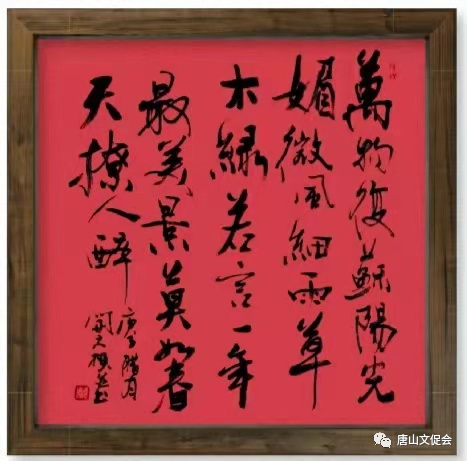 萬物復蘇陽光
媚微風細雨草
木緑若言一年
最美景莫如春
天撩人醉
庚子臘月
唐山文促会